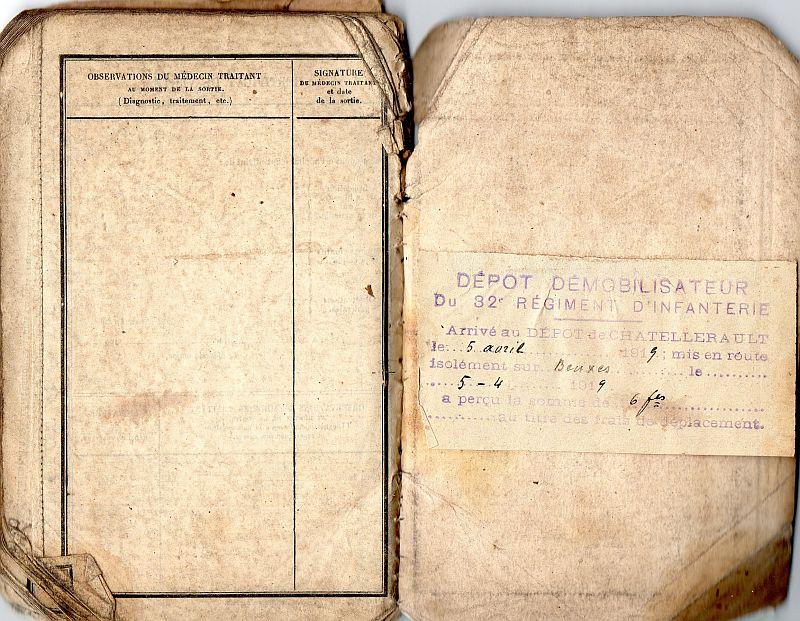 OBSERVATIONS DU MÉDECIN TRAITANT
AU MOMENT DE LA SORTIE.
(Diagnostic, traitement, etc.)
SIGNATURE
DU MÉDECIN TRAITANT
et date
de la sortie.
DÉPOT DÉMOBILISATEUR
Du 32e RÉGIMENT D'INFANTERIE
Arrivé au DÉPOT de CHATELLERAULT
le...5 avril......1919; mis en route
isolément sur Beuxes........le..........
.....5-4......1919
a perçu la somme de 6 fcs..................
............au titre des frais de déplacement.